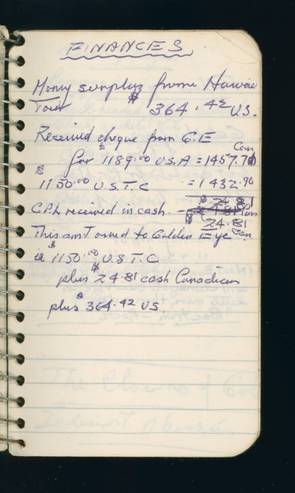 FINANCES
Money surplus from Hawaii
Tour $364.42 U.S.
Received cheque from G.E
Can
for $1189.00 U.S.A = 1457.70
$1150.00 U.S.T.C = 1432.90
$24.81
C.P.L received in cash
24.81 Can
This amt owed to Golden Eye
$1150.00 U.S.T.C
plus $24.81 cash Canadian
plus $364.42 US.